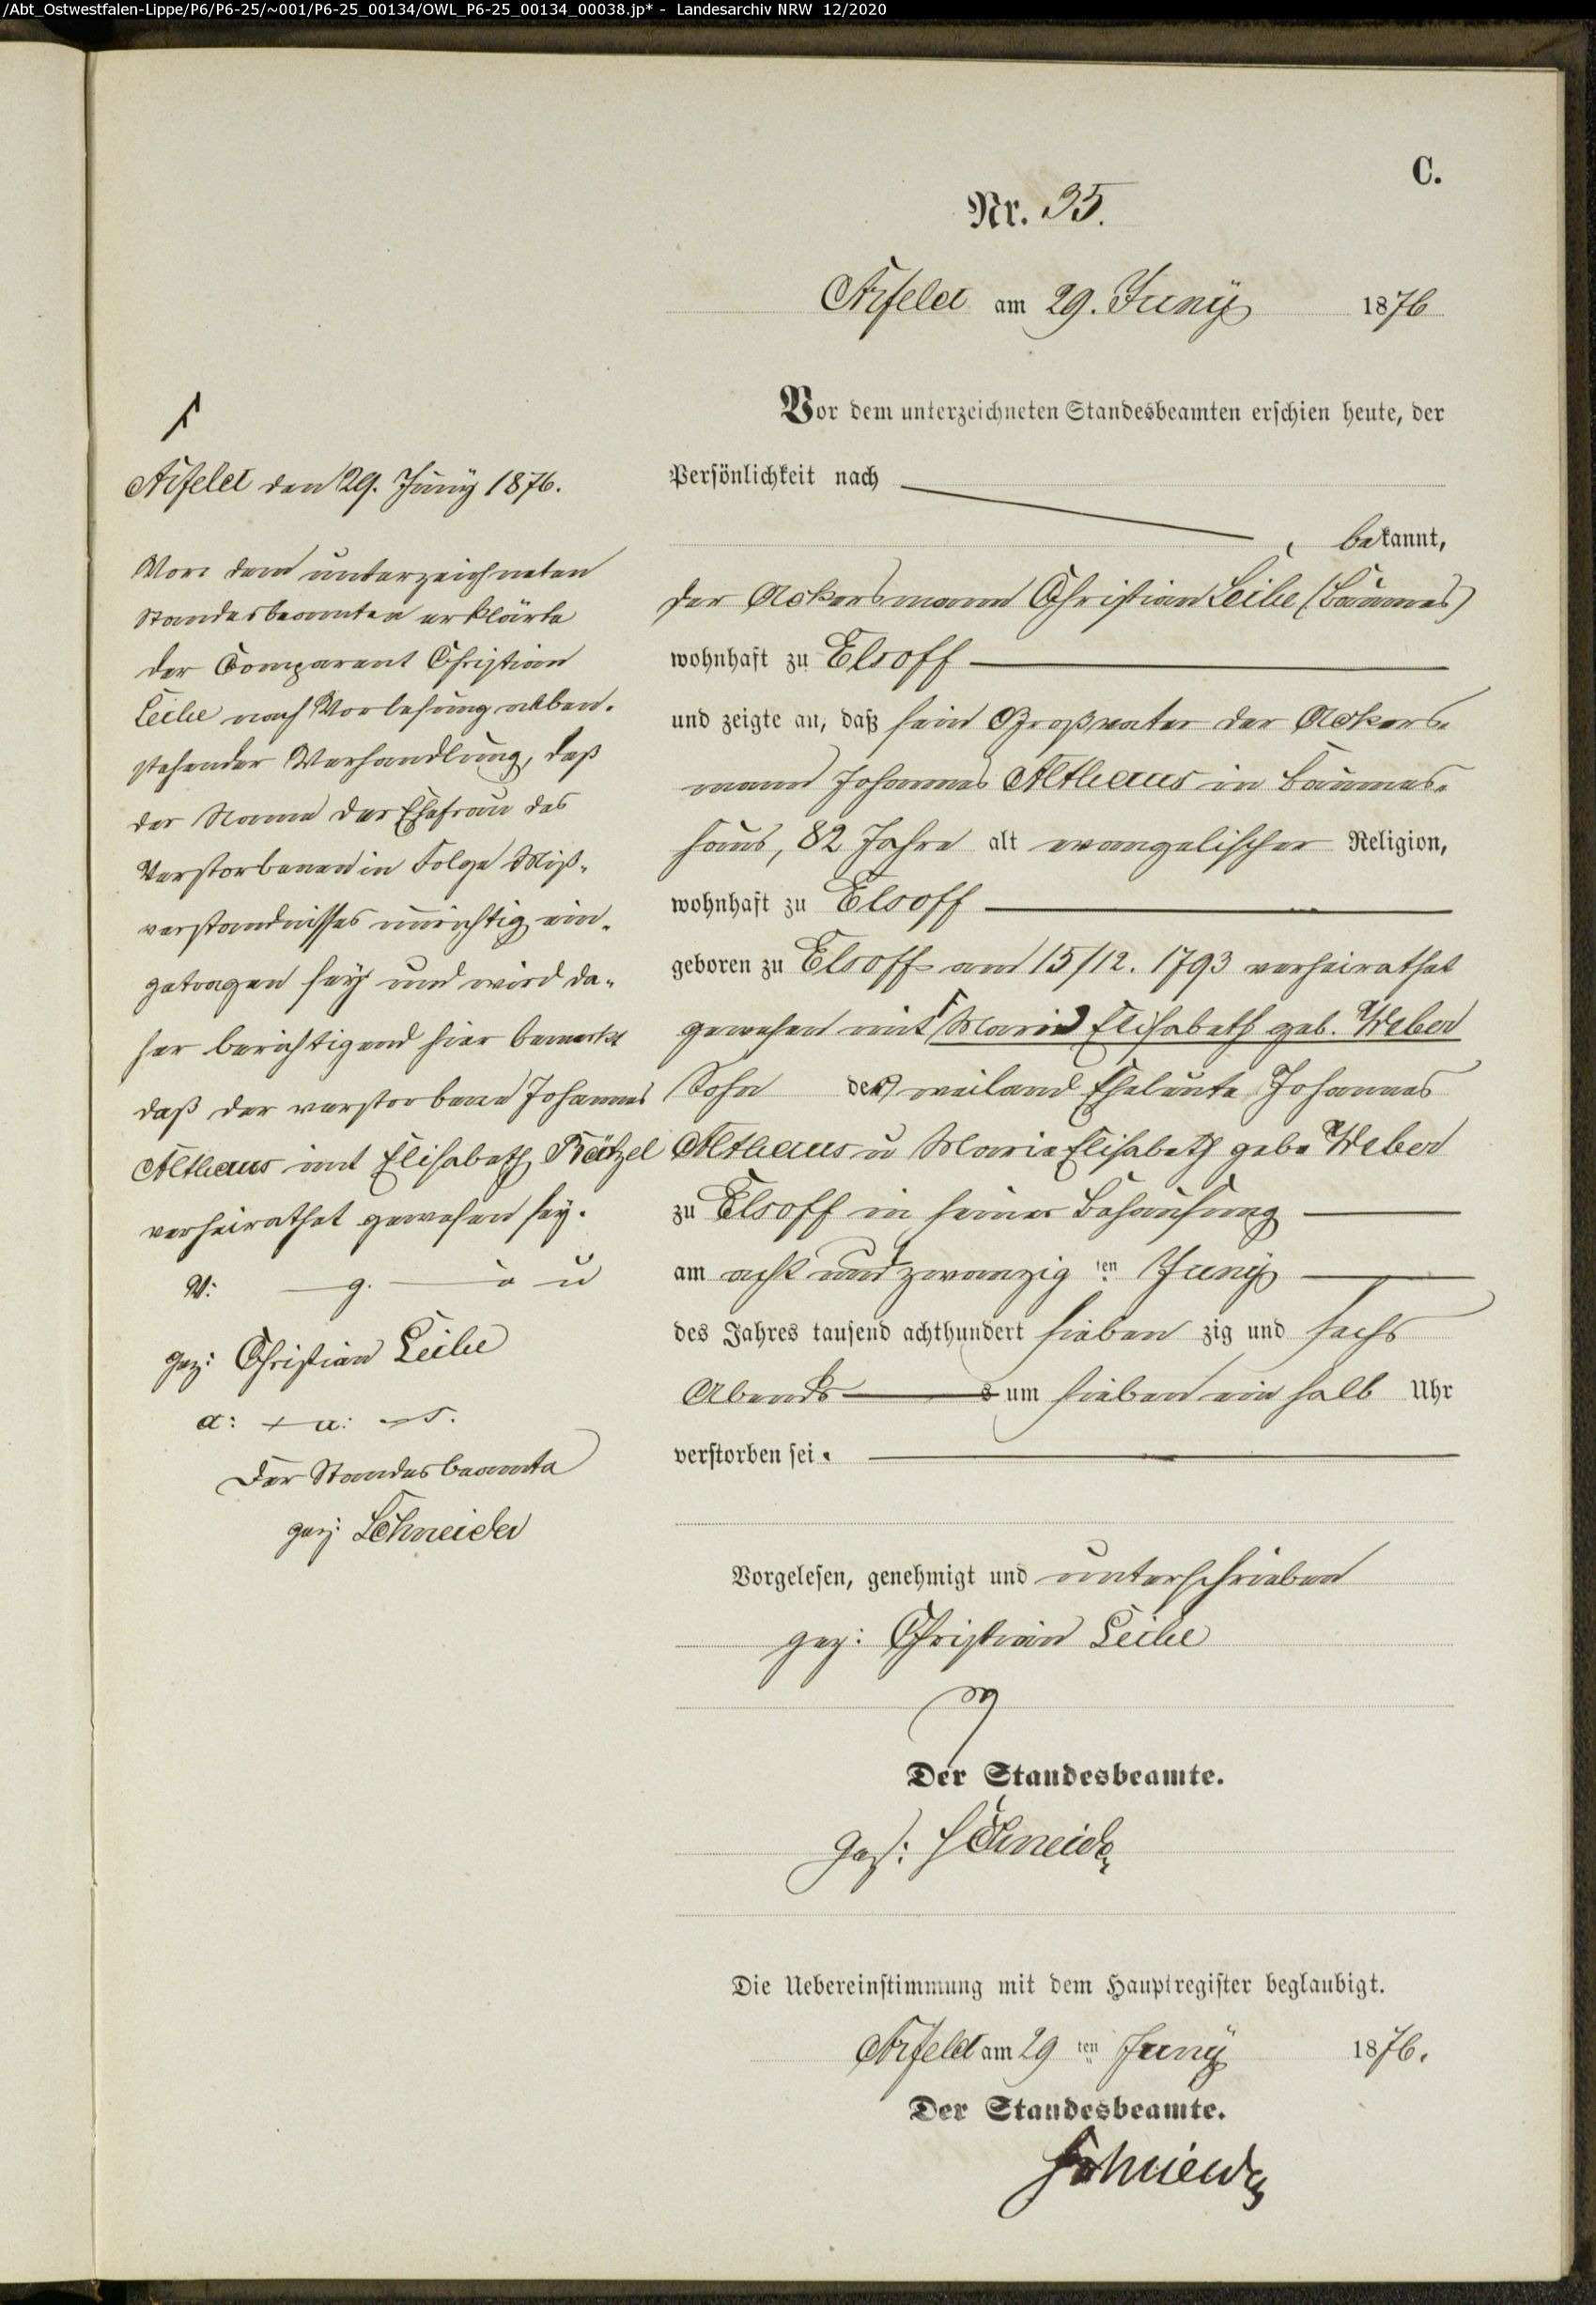 /Abt_Ostwestfalen-Lippe/P6/P6-25/~001/P6-25_00134/OWL_P6-25_00134_00038.jp* - Landesarchiv NRW 12/2020
C.
Nr. 35.
Arfeld am 29. Juny 1876
Vor dem unterzeichneten Standesbeamten erschien heute, der
Persönlichkeit nach
bekannt,
der Ackersmann Christian Leibe (Bäumes)
wohnhaft zu Elsoff
und zeigte an, daß sein Großvater der Ackers-
mann Johannes Althaus in Bäumes-
haus, 82 Jahre alt evangelischer Religion,
wohnhaft zu Elsoff
geboren zu Elsoff am 15/12. 1793 verheirathet
gewesen mit Maria Elisabeth geb. Weber
Sohn der weiland Eheleute Johannes
Althaus u Maria Elisabeth geb. Weber
zu Elsoff in seiner Behausung
am acht und zwanzig ten Juny
des Jahres tausend achthundert sieben zig und sechs
Abends um sieben ein halb Uhr
verstorben sei.
Vorgelesen, genehmigt und unterschrieben
gez: Christian Leibe
Der Standesbeamte.
gez: Schneider
Die Uebereinstimmung mit dem Hauptregister beglaubigt.
Arfeld am 29 ten Juny 1876.
Der Standesbeamte.
Schneider
Arfeld den 29. Juny 1876.
Vor dem unterzeichneten
Standesbeamten erklärte
der Comparent Christian
Leibe nach Vorlesung neben-
stehender Verhandlung, daß
der Name der Ehefrau des
Verstorbenen in Folge Miß-
verstandnisses unrichtig ein-
getragen sey und wird da-
her berichtigend hier bemerkt
daß der verstorbene Johannes
Althaus mit Elisabeth Bätzel
verheirathet gewesen sey.
V. g. u
gez: Christian Leibe
a: u: s.
Der Standesbeamte
gez: Schneider